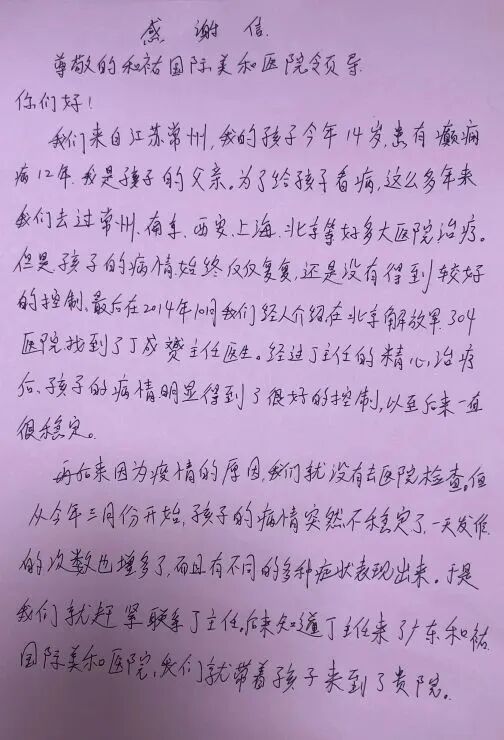 感谢信
尊敬的和祐国际美和医院领导
你们好!
我们来自江苏常州,我的孩子今年14岁,患有癫痫
病12年.我是孩子的父亲。为了给孩子看病,这么多年来
我们去过常州、南京、西安、上海、北京等好多大医院治疗。
但是孩子的病情始终仅仅复复,还是没有得到较好
的控制、最后在2014年10月我们经人介绍,在北京解放军304
医院找到了丁成赟主任医生。经过丁主任的精心治疗
后、孩子的病情明显得到了很好的控制,以至后来一直
很稳定。
再后来因为疫情的原因,我们就没有去医院检查。但
从今年三月份开始,孩子的病情突然不稳定了,一天发作
的次数也增多了,而且有不同的多种症状表现出来。于是
我们就赶紧联系丁主任。后来知道丁主任来了广东和祐
国际美和医院,我们就带着孩子来到了贵院。